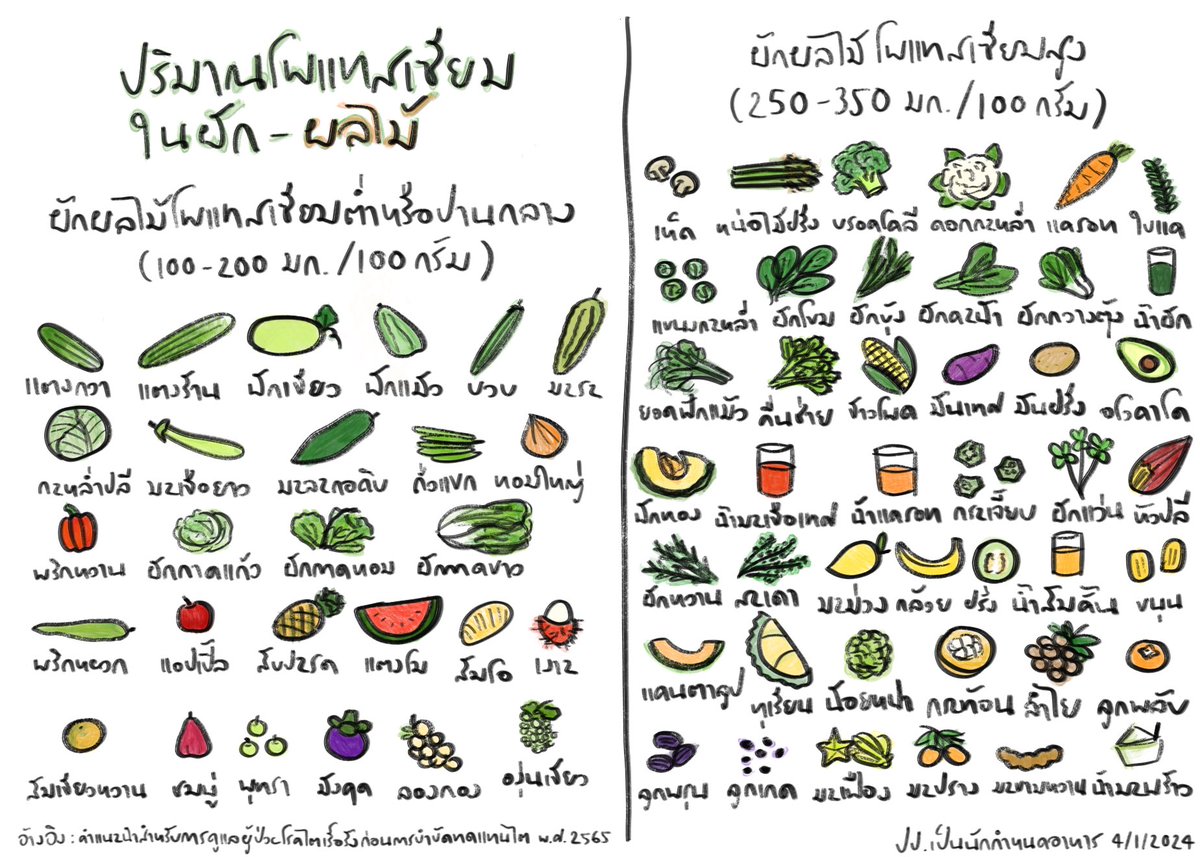 ปริมาณโพแทสเซียม
ในผัก - ผลไม้
ผักผลไม้โพแทสเซียมต่ำหรือปานกลาง
(100-200 มก./100 กรัม)
แตงกวา แตงร้าน ฟักเขียว ฟักแม้ว บวบ มะระ
กะหล่ำปลี มะเขือยาว มะละกอดิบ ถั่วแขก หอมใหญ่
พริกหวาน ผักกาดแก้ว ผักกาดหอม ผักกาดขาว
พริกหยวก แอปเปิ้ล สับปะรด แตงโม ส้มโอ เงาะ
ส้มเขียวหวาน ชมพู่ พุทรา มังคุด ลองกอง องุ่นเขียว
อ้างอิง : คำแนะนำสำหรับการดูแลผู้ป่วยโรคไตเรื้อรังก่อนการบำบัดทดแทนไต พ.ศ. 2565
ผักผลไม้โพแทสเซียมสูง
(250-350 มก./100 กรัม)
เห็ด หน่อไม้ฝรั่ง บรอคโคลี ดอกกะหล่ำ แครอท ใบแค
แขนงกะหล่ำ ผักโขม ผักบุ้ง ผักคะน้า ผักกวางตุ้ง น้ำผัก
ยอดฟักแม้ว คื่นช่าย ข้าวโพด มันเทศ มันฝรั่ง อโวคาโด
ฟักทอง น้ำมะเขือเทศ น้ำแครอท กระเจี๊ยบ ผักแว่น หัวปลี
ผักหวาน สะเดา มะม่วง กล้วย ฝรั่ง น้ำส้มคั้น ขนุน
แคนตาลูป ทุเรียน น้อยหน่า กระท้อน ลำไย ลูกพลับ
ลูกพรุน ลูกเกด มะเฟือง มะปราง มะขามหวาน น้ำมะพร้าว
ปป.เป็นนักกำหนดอาหาร 4/1/2024